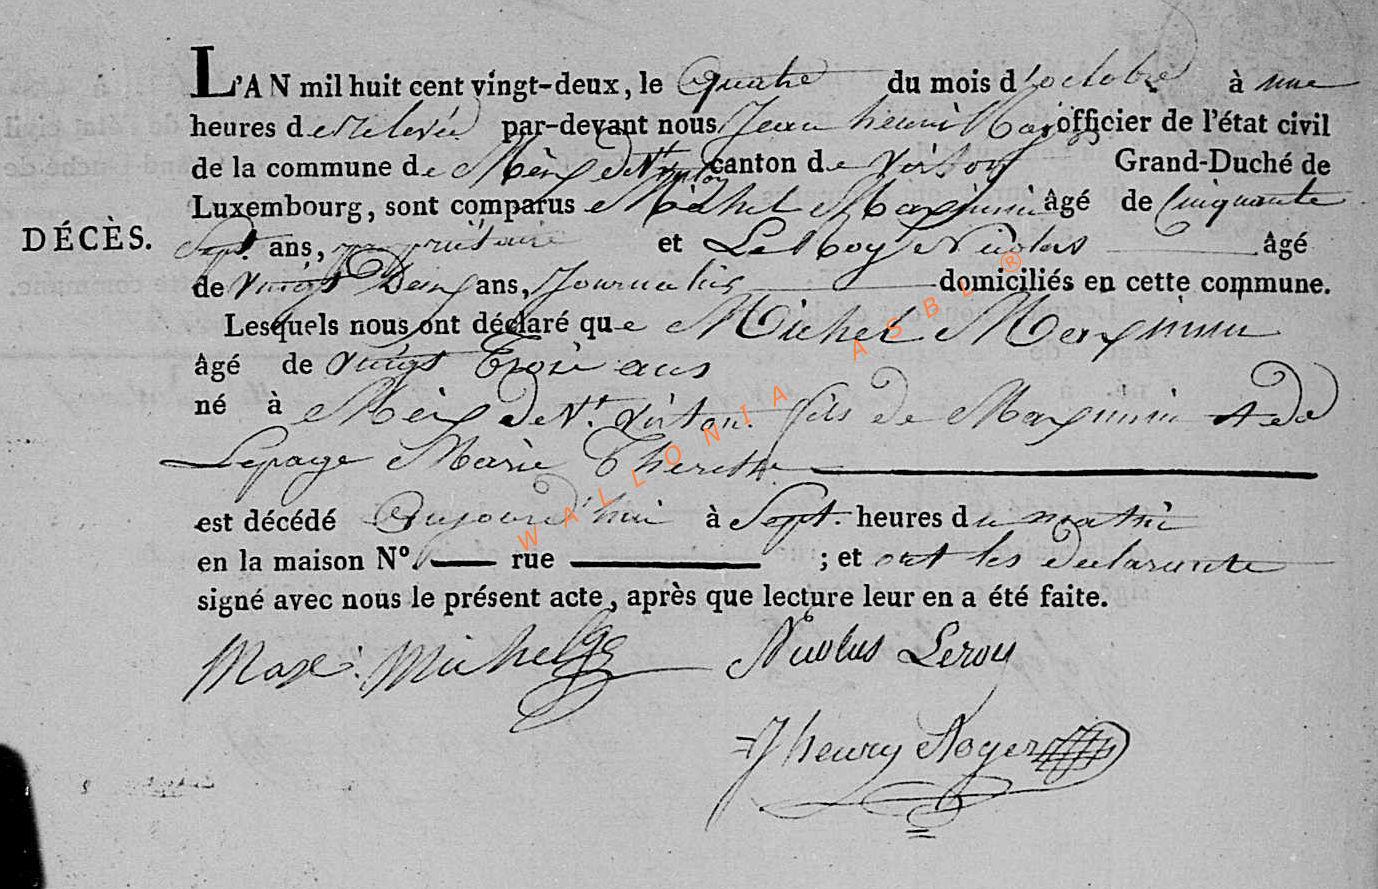 L'AN mil huit cent vingt-deux, le Quatre du mois d'octobre à une
heures de Relevée par-devant nous Jean henri officier de l'état civil
de la commune de Mèix dvt virton canton de Virton Grand-Duché de
Luxembourg, sont comparus Michel Maximin âgé de Cinquante
DÉCÈS.
Sept ans, propriétaire et Le Roy Nicolas âgé
de Vingt Deux ans, Journalier domiciliés en cette commune.
Lesquels nous ont déclaré que Michel Maximin
âgé de Vingt Trois ans
né à Mèix Devt. Virton. fils de Maximin et de
Lepage Marie Therese
est décédé Aujourd'hui à Sept. heures du matin
en la maison N° rue ; et ont les declarants
signé avec nous le présent acte, après que lecture leur en a été faite.
Maxi. Michel
Nicolas Leroy
J henry Roger
WALLONIA ASBL ®